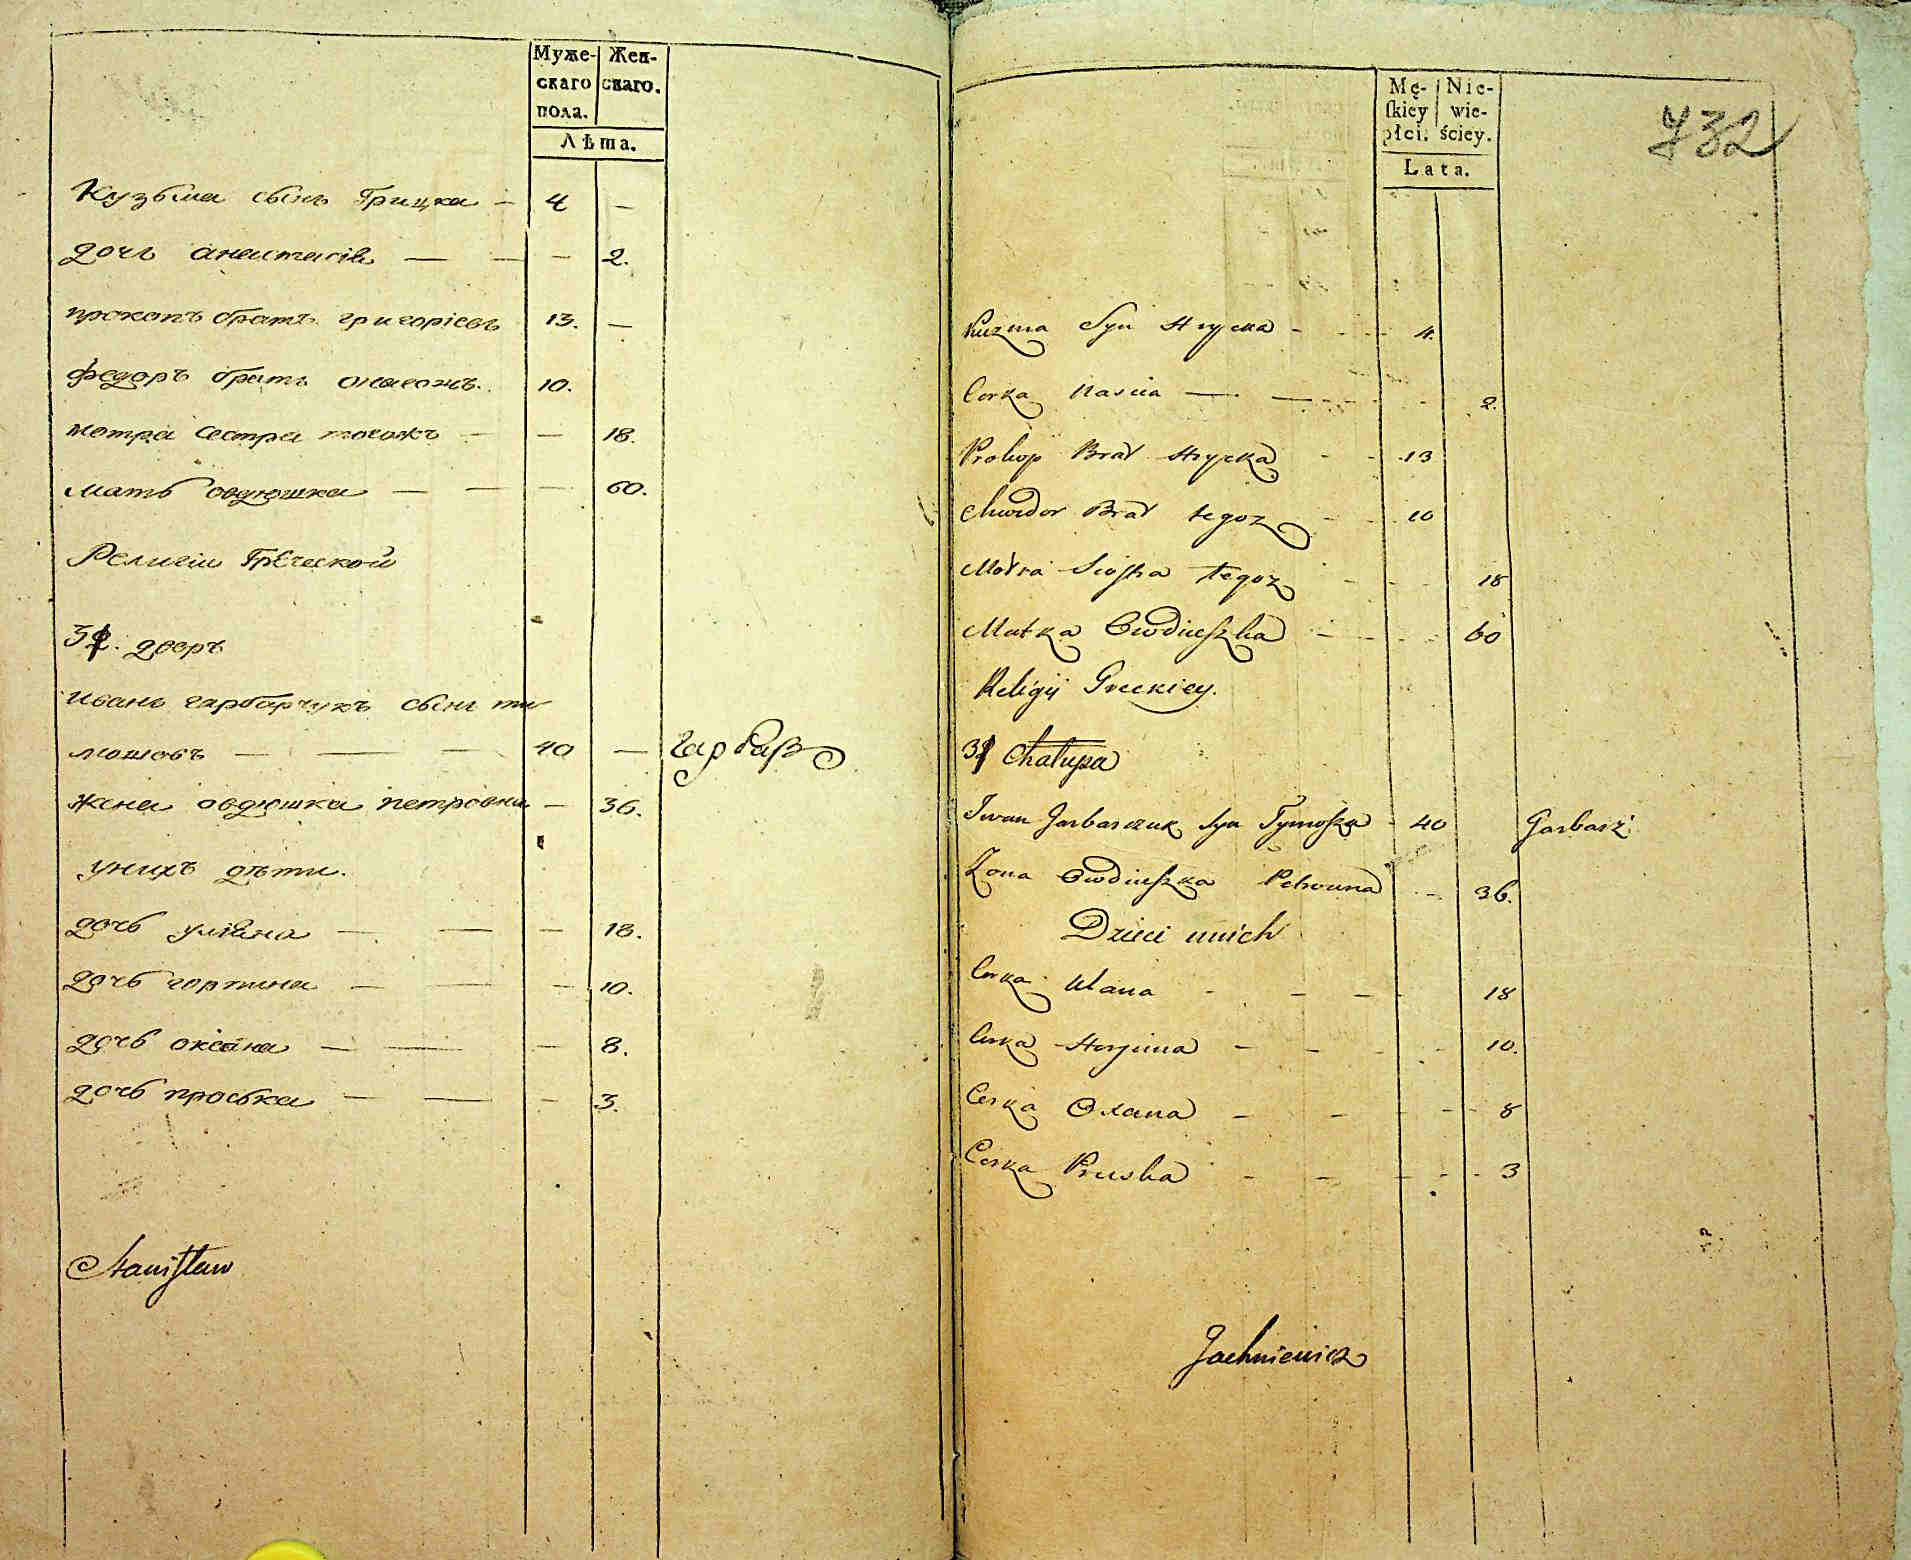 Муже-
скаго
пола.
Жен-
скаго.
Лѣта.
Кузьма сынъ Грицка — 4 —
дочь анастасія — — — 2.
прокопъ братъ григоріевъ 13. —
федоръ братъ онагожъ. 10.
мотра сестра тогожъ — — 18.
мать овдюшка — — — 60.
Религіи Греческой
32. дворъ
Иванъ гарбарчукъ сынъ ти
мошовъ — — — 40 — гарбаръ
жена овдюшка петровна — 36.
унихъ дѣти.
дочь уліяна — — — 18.
дочь горпина — — — 10.
дочь оксана — — — 8.
дочь проська — — — 3.
Stanisław
Mę-
skiey
płci.
Nie-
wie-
ściey.
Lata.
732
Kuzma Syn Hrycka - - 4.
Corka Nascia — — - - 2.
Prokop Brat Hrycka - - 13
Chwedor Brat tegoz - - 10
Motra Siostra tegoz - - - 18
Matka Owdiuszka - - - 60
Religij Greckiey.
32 Chałupa
Iwan Garbarczuk Syn Tymoszka - 40 Garbarz
Zona Owdiuszka Petrowna - - 36.
Dzieci unich
Corka Ulana - - - - 18
Corka Horpina - - - - 10.
Corka Oxana - - - - 8
Corka Pruska - - - - - 3
Jachniewicz